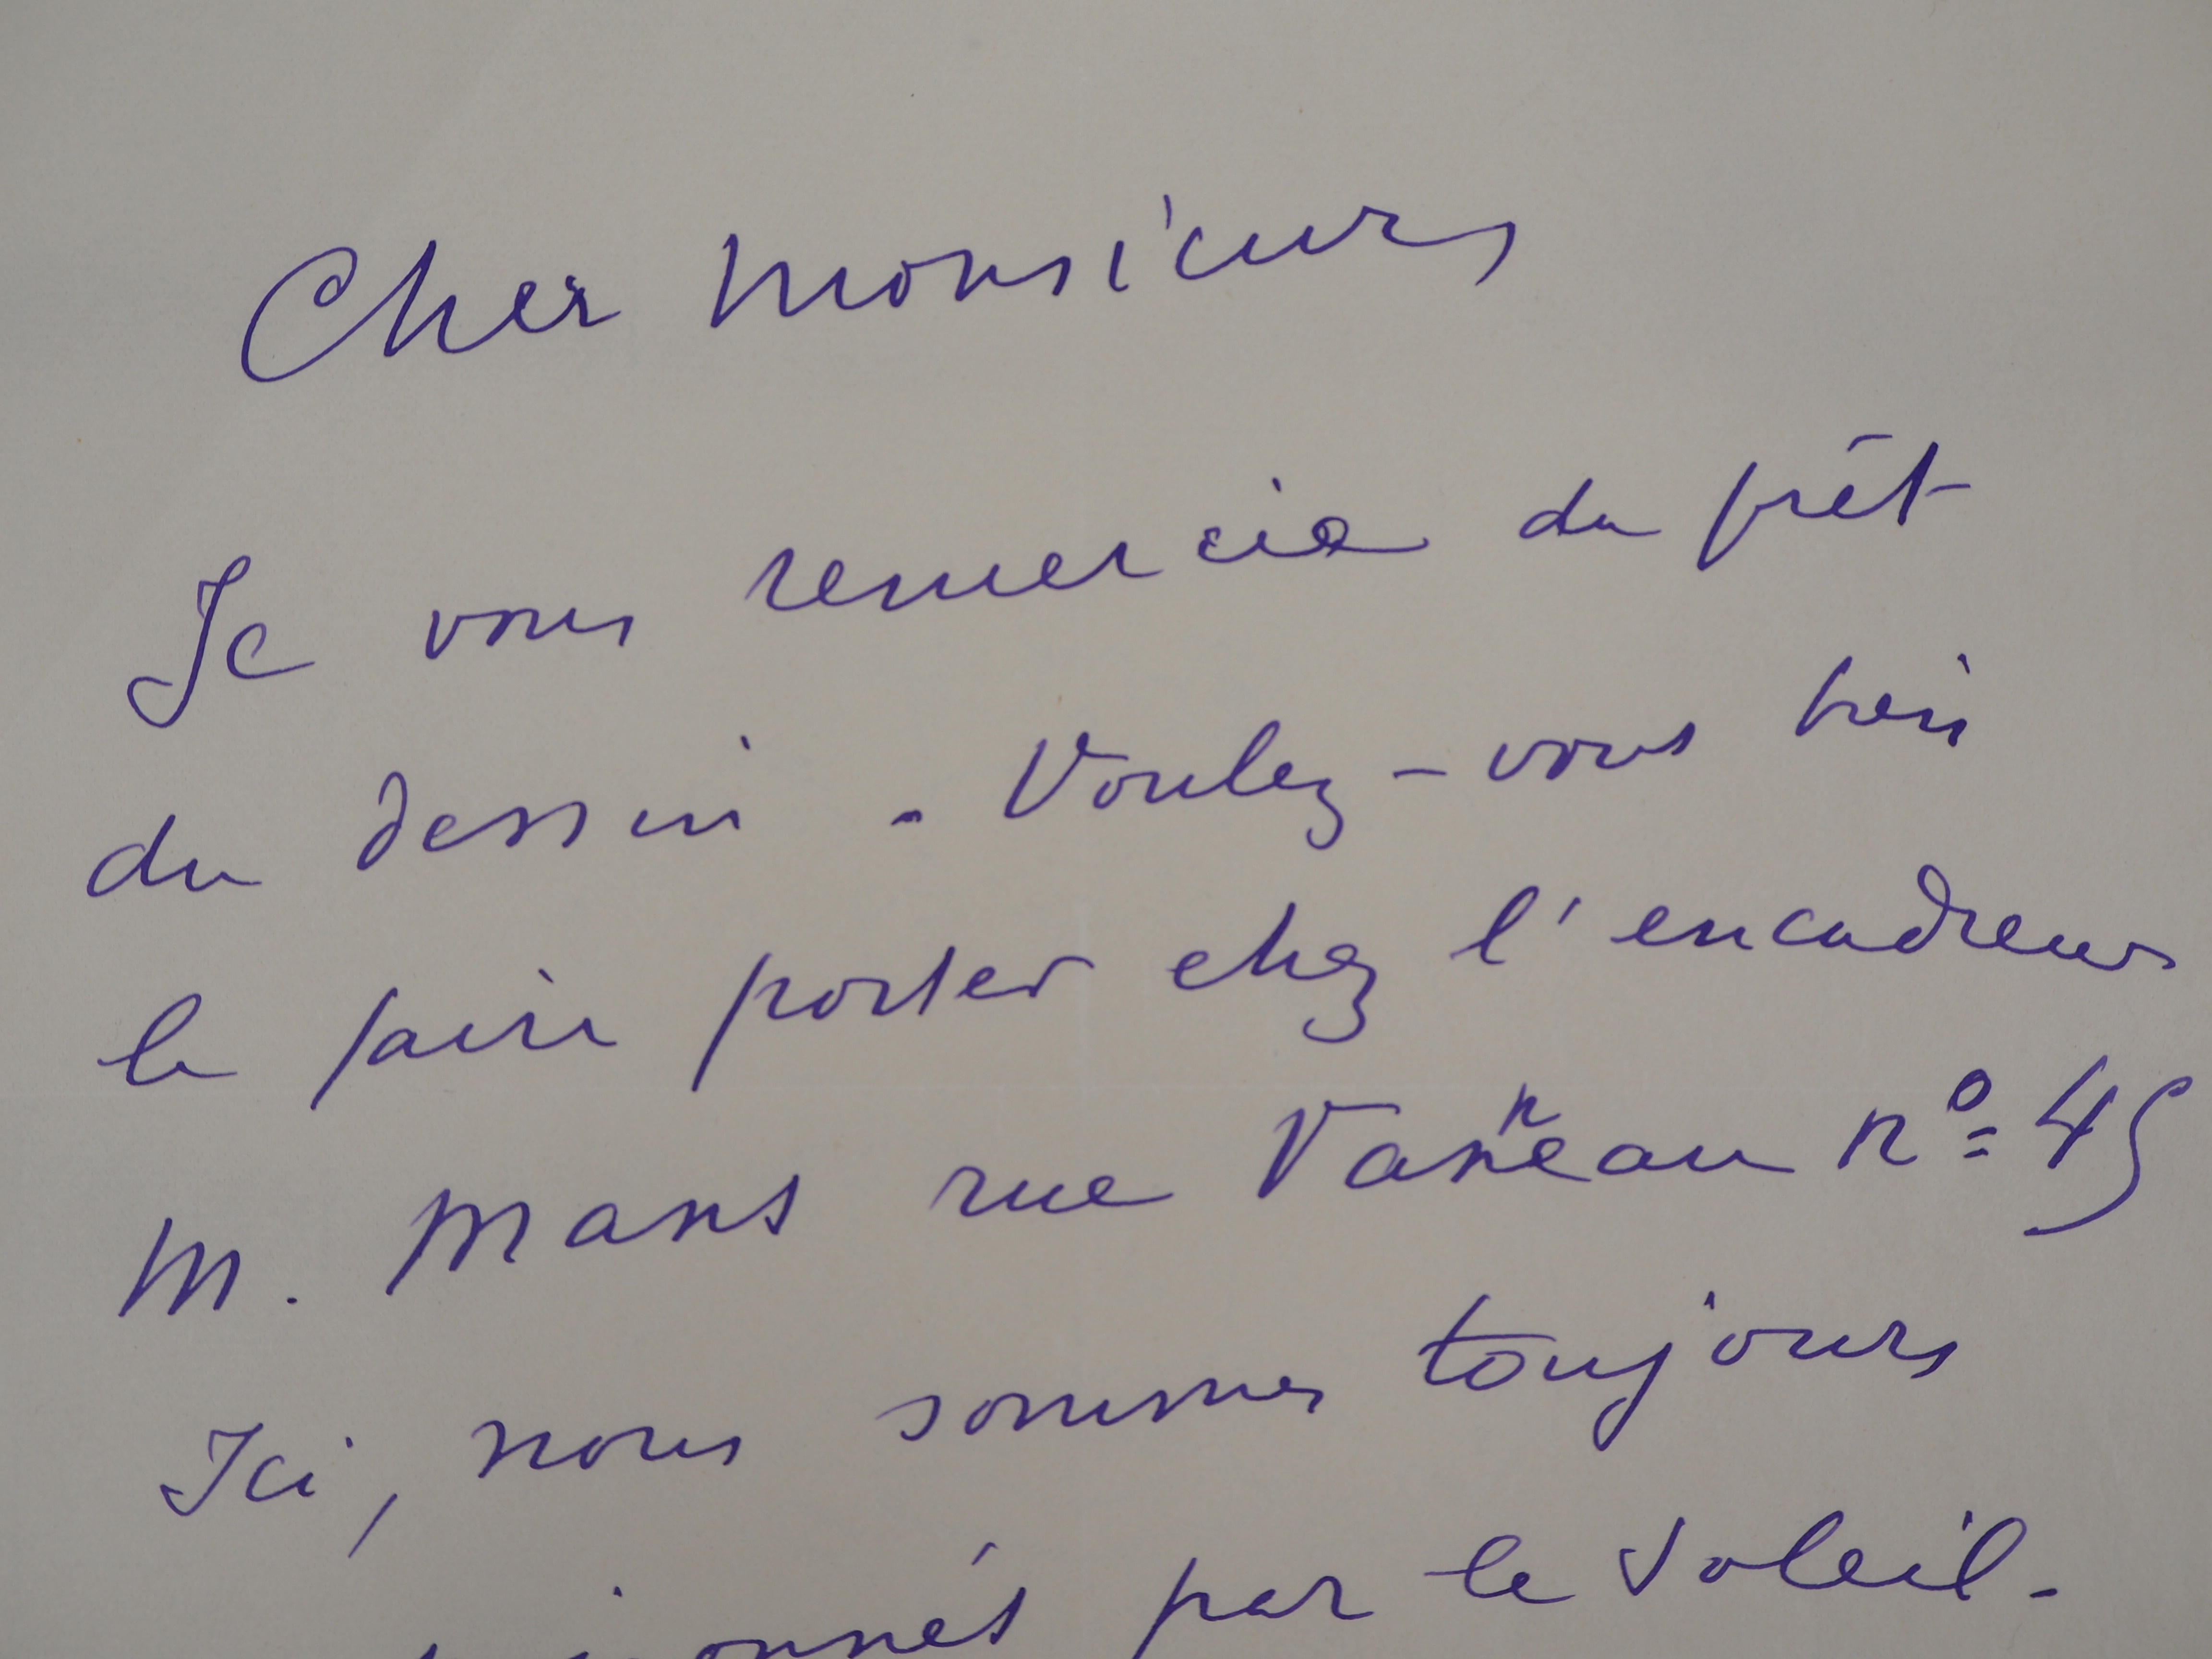 Cher Monsieur,
Je vous remercie du prêt
du dessin. Voulez-vous bien
le faire porter chez l'encadreur
M. Mans rue Vaneau nº 45
Ici, nous sommes toujours
par le soleil.